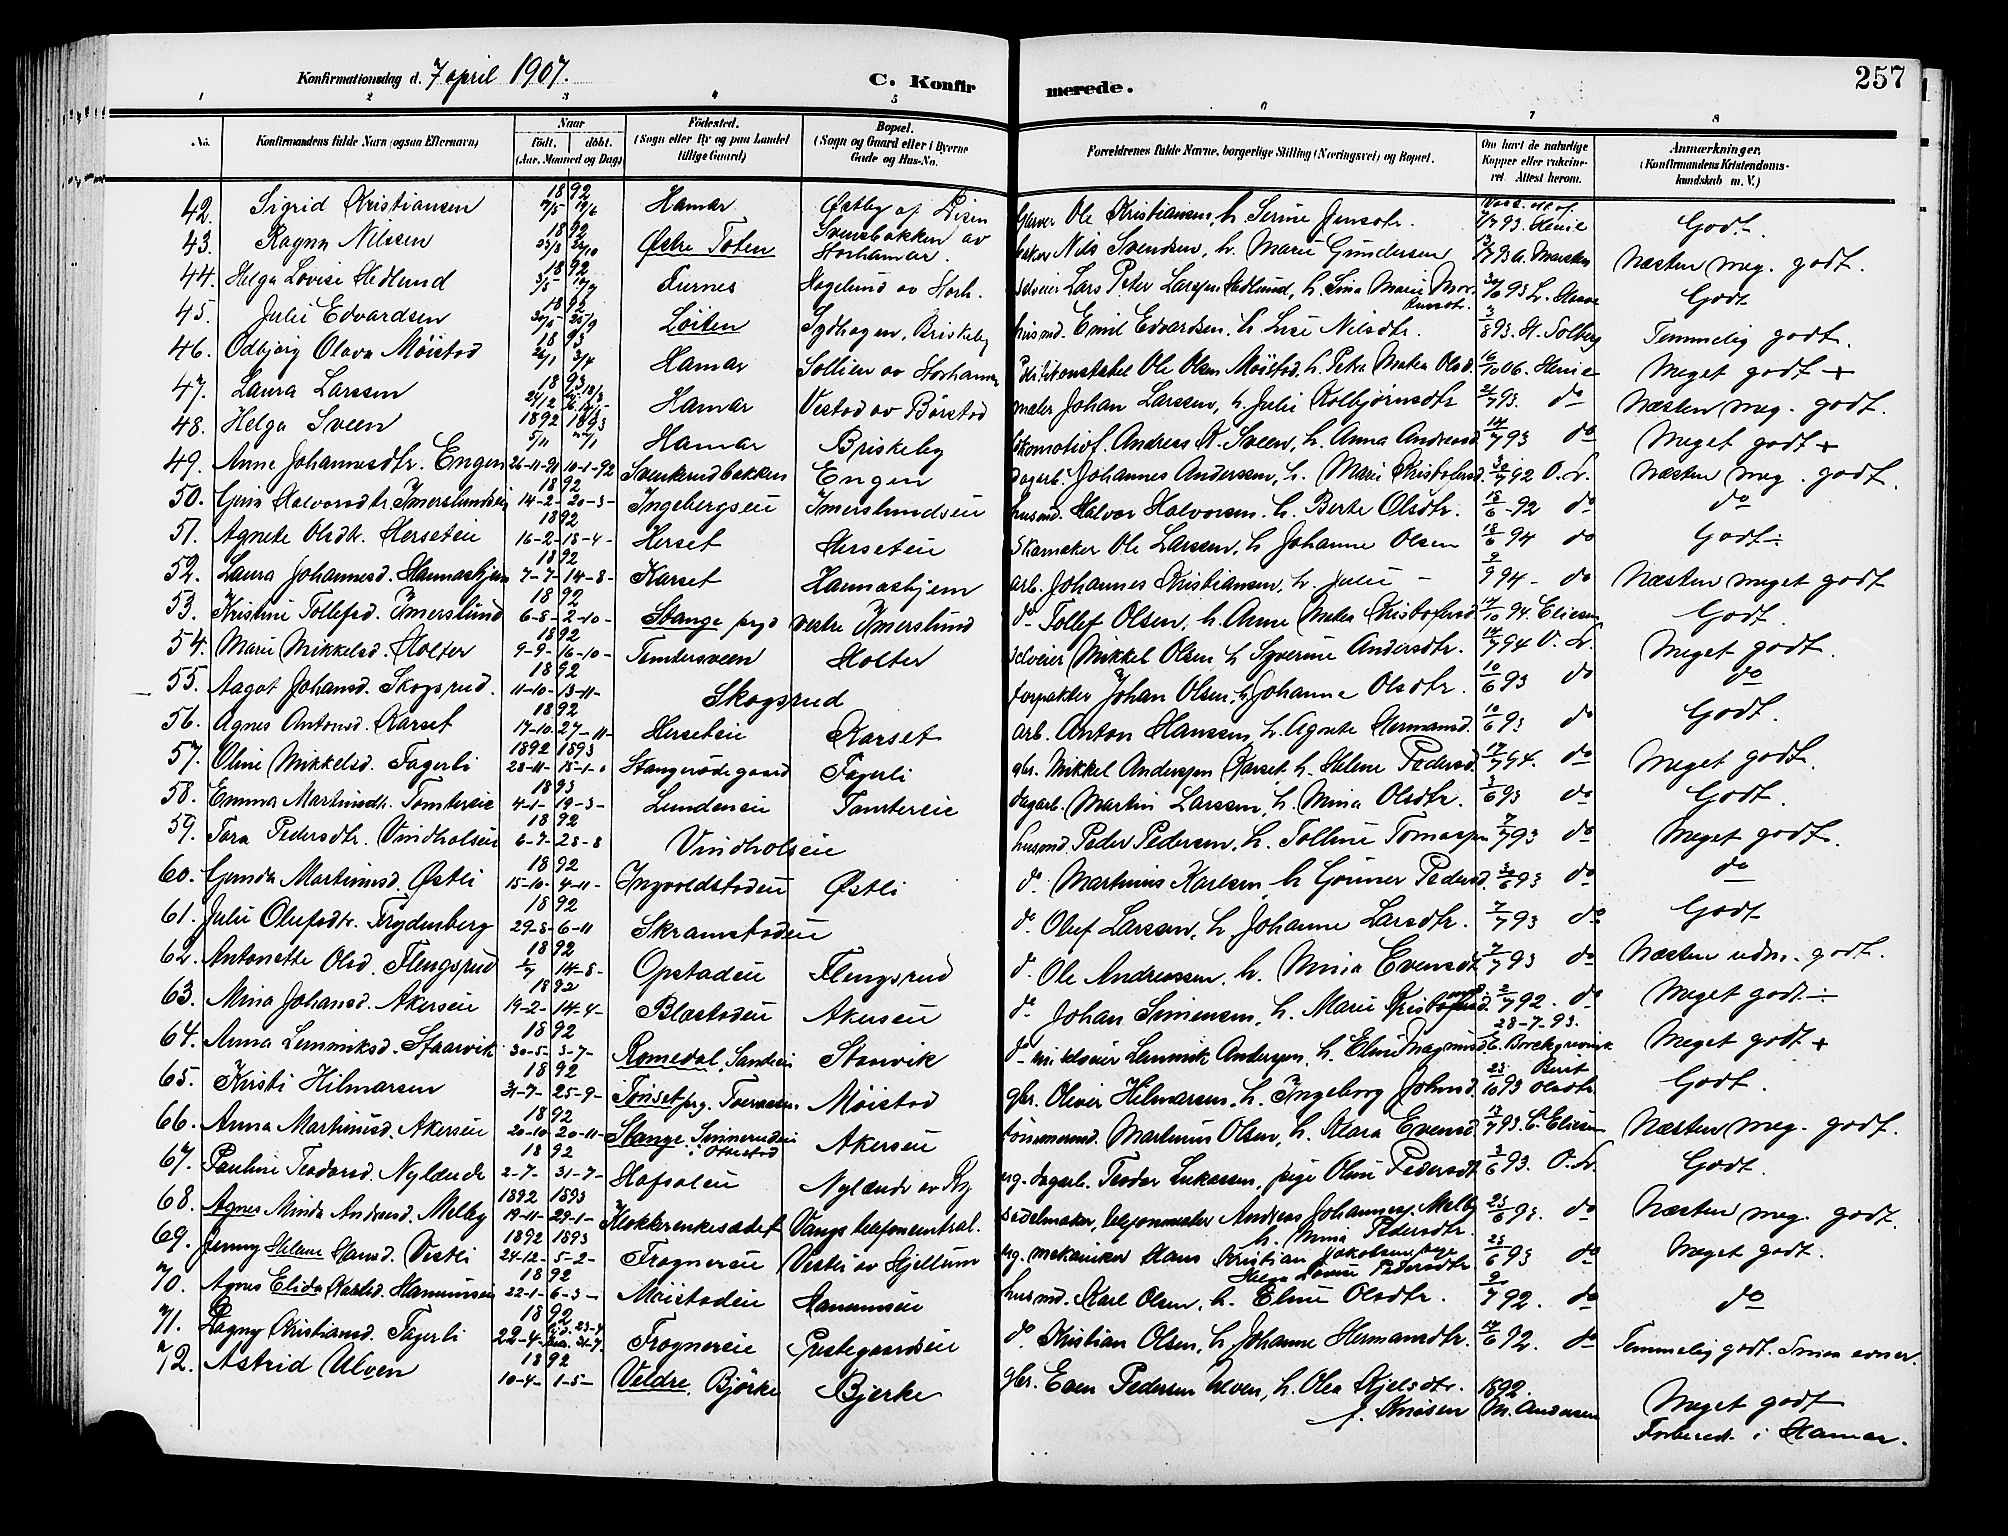 Konfirmationsdag d. 7 april 1907.
C. Konfirmerede.
257
1 2 3 4 5 6 7 8
No. Konfirmandens fulde Navn (ogsaa Efternavn) Naar födt. döbt. (Aar, Maaned og Dag) Födested. (Sogn eller By og paa Landet tillige Gaard) Bopæl. (Sogn og Gaard eller i Byerne Gade og Hus-No. Forældrenes fulde Navne, borgerlige Stilling (Næringsvei) og Bopæl. Om havt de naturlige Kopper eller vakcineret. Attest herom. Anmærkninger. (Konfirmandens Kristendomskundskab m. V.)
42. Sigrid Kristiansen 1892 Hamar Østby af Disen Ole Kristiansen, h. Serine Jensdtr. 93. Henie Godt.
43. Ragna Nilssen 1892 Østre Toten Svensbakken av Storhamar. Nils Svendsen, h. Marie Gundersen 93 Næsten meg. godt.
44. Helga Lovise Hedlund 1892 Furnes Hagelund av Storh. selveier Lars Peter Larssen Hedlund, h. Sina Marie 93 Godt
45. Julie Edvardsen 1892 Løiten Sydhagen, Briskeby husmd. Emil Edvardsen, h. Lise Nilsdtr. 3/8 93. St. Solberg Temmelig godt.
46. Odbjørg Olava Møistad 1893 Hamar Sollien av Storhamar Politikonstabel Ole Olsen Møistad, h. Petra Matea Olsd. 16/10 06. Henie Meget godt +
47. Laura Larssen 1893 Hamar Vestad av Børstad maler Johan Larssen, h. Julie Kolbjørnsdtr 93. do Næsten meg. godt.
48. Helga Sveen 1892 1893 5/11 Hamar Briskeby Andreas Sveen, h. Anna Andreasd. 14/7 93 do Meget godt +
49. Anne Johannesdtr. Engen 26-11-91 10-1-92 Svenkerudbakken Engen dagarb. Johannes Andersen, h. Marie Kristofersd. 92 O. Lr. Næsten meg. godt.
50. Halvorsdtr. Imerslundseie 1892 14-2- 20-3- Ingebergseie Imerslundseie husmd. Halvor Halvorsen, h. Berte Olsdtr. 18/6 -92 do do
51. Agnete Olsdtr. Herseteie 1892 16-2- 18-4- Herset Herseteie Skomaker Ole Larssen, h. Johanne Olsen 18/6 94 do Godt÷
52. Laura Johannesd. 1892 7-7- 14-8- Karset arb. Johannes Kristiansen, h. Julie - 94- do Næsten meget godt
53. Kristine Tollefsd. Imerslund 1892 6-8- 2-10- Stange prgd vestre Imerslund do Tollef Olsen, h. Anne Matea Kristofersd. 94. Eliesen Godt.
54. Marie Mikkelsd. Holter 1892 9-9- 16-10- Tomtersveen Holter selveier Mikkel Olsen, h. Syverine Andersdtr. 94 O. Lr. Meget godt.
55. Aagot Johansd. Skogsrud. 1892 11-10- 13-11- Skogsrud forpakter Johan Olsen, h. Johanne Olsdtr. 10/6 93 do do
56. Agnes Antonsd. Karset 1892 17-10- 27-11- Herseteie Karset arb. Anton Hanssen, h. Agnete Hermansd. 10/6 93 do Godt.
57. Oline Mikkelsd. Fagerli 1892 1893 28-11- 15-1- Fagerli gbr. Mikkel Andersen Karset, h. Helene Pedersd. 94. do Meget godt.
58. Emma Martinsdtr. Tomtereie 1893 4-1- 19-3- Lundeneie Tomtereie dagarb. Martin Larssen, h. Mina Olsdtr. 93 do Godt.
59. Tara Pedersdtr. Vindholseie 1892 6-7- 28-8 Vindholseie husmd Peder Pedersen, h. Tolline Tomassen 7/7 93 do Meget godt.
60. Gunda Martinusd. Østli 1892 15-10- 4-11- Ingvoldstadeie Østli do. Martinus Karlsen, h. Pedersd. 93 do do
61. Julie Olufsdtr. Frydenberg 1892 29-8- 6-11 Skramstadeie do. Oluf Larssen, h. Johanne Larsdtr. 7/7 93 do Godt
62. Antonette Olsd. Flengsrud 1892 14-8- Opstadeie Flengsrud do. Ole Andreassen, h. Mina Evensdtr 7/7 93 do Næsten udm. godt.
63. Mina Johansd. Akerseie 1892 19-2- 14-4- Blæstadeie Akerseie do Johan Simensen, h. Marie Kristofersd. 92. do Meget godt ÷
64. Anna Lemmiksd. Staarvik 1892 30-5- 3-7- Romedal, Staarvik selveier Andersen, h. Eline Magnusd. 28-7-93. Meget godt +
65. Kirsti Hilmarsen 1892 31-7- 25-9- Tønset prg. Møistad gbr. Oliver Hilmarsen, h. Ingeborg Johnsd. 93 Berit Olsdtr Godt.
66. Anna Martinusd. Akerseie 1892 20-10- 20-11- Stange. i Ottestad Akerseie tømmermd. Martinus Olsen, h. Klara Evensd 93. C. Eliesen Næsten meg. godt.
67. Pauline Teodorsd. Nylænde 1892 2-7- 31-7- Hafsaleie Nylænde av Ry ug. dagarb. Teodor Lukassen, pige Oline Pedersdt 93. O. Lr. Godt.
68. Agnes Minda Andreasd. Melby 1892 1893 19-11- 29-1- Klokkerenkesædet Vangs telefoncentral. sadelmaker, telefonmester Andreas Johannesen Melby h. Mina Pedersdtr. 6 93. do Næsten meg. godt.
69. Jenny Helene Hansd. Vestli 1892 1893 24-12- 5-2- Frognereie Vestli av Hjellum ug. mekaniker Hans Kristian Jakobsen, pige Helga Lovise Pedersdtr 6 93 do Meget godt.
70. Agnes Elida Karlsd. 1892 22-1- 6-3- Møistadeie husmd. Karl Olsen, h. Eline Olsdtr. 92. do do
71. Ragny Kristiansd. Fagerli 1892 22-4- Frognereie Prestegaardseie do Kristian Olsen, h. Johanne Hermansdtr. 6 92. do Temmelig godt. Smaa evner.
72. Astrid Ulven 1892 10-4- 1-5- Veldre, Bjørke Bjerke gbr. Even Pedersen Ulven, h. Olea Kjelsdtr. 1892. M. Andersen Meget godt
Forbered. i Hamar.